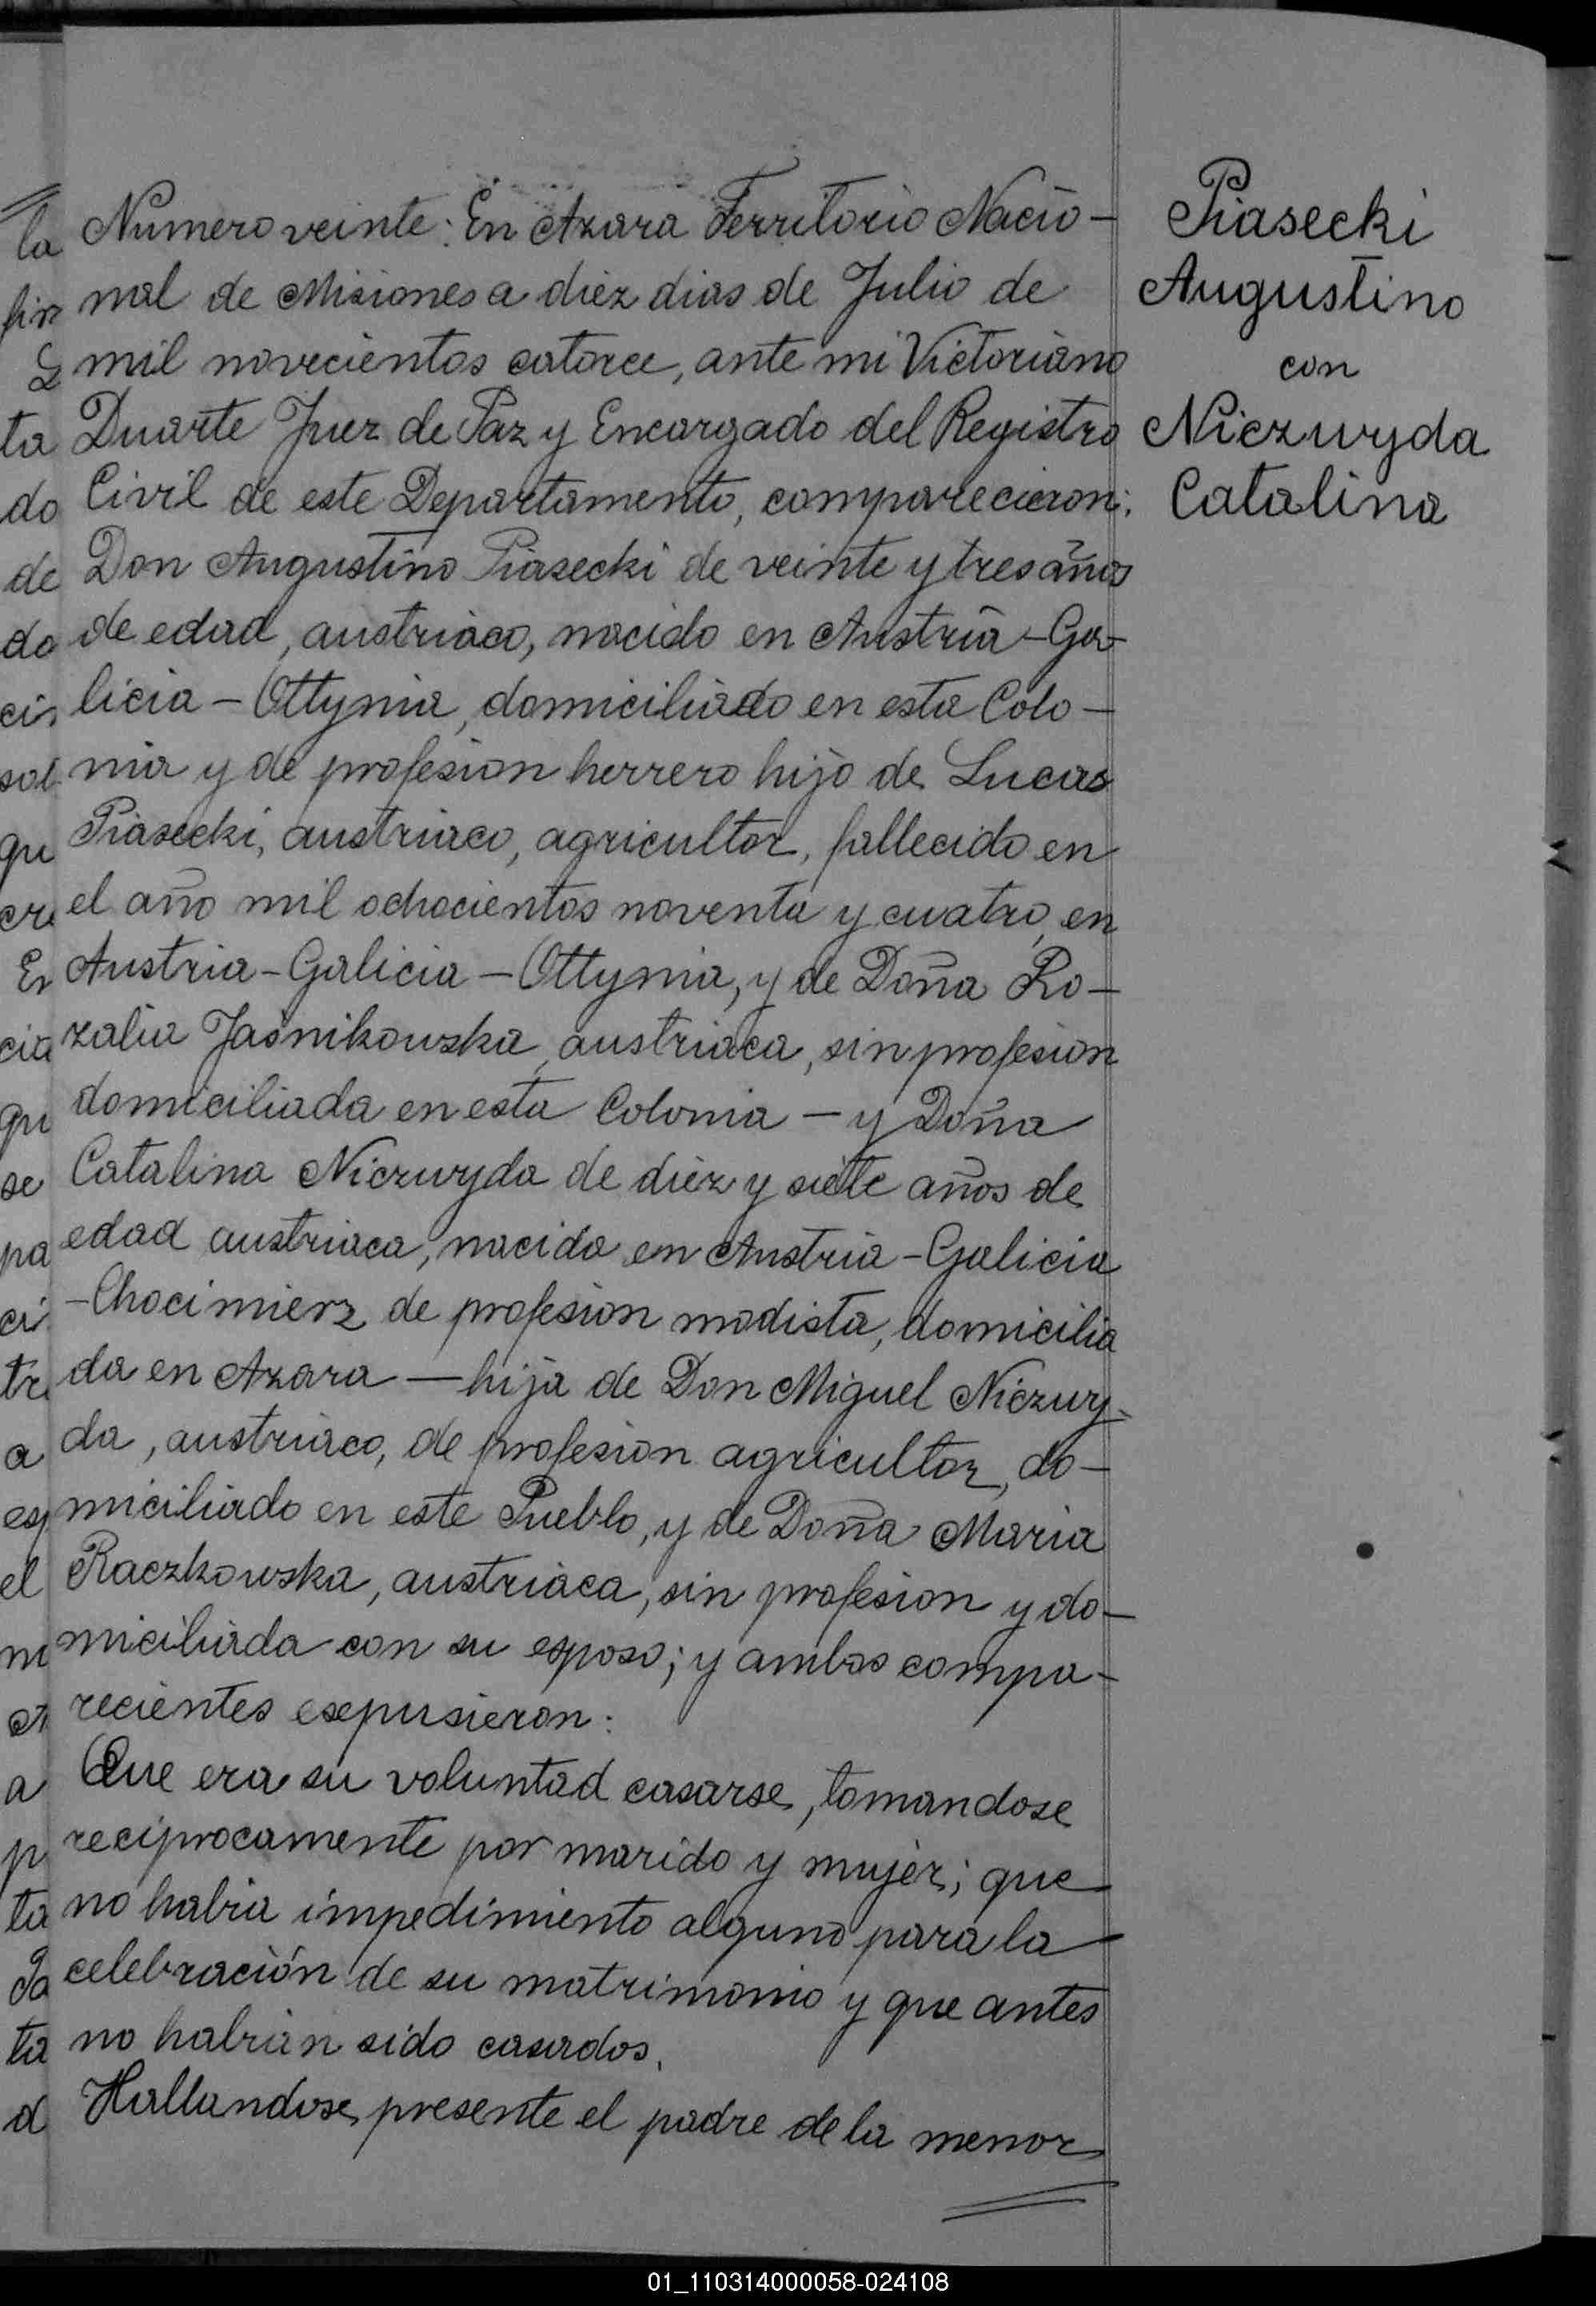 Numero veinte: En Azara Territorio Nacio-
nal de Misiones a diez dias de Julio de
mil novecientos catorce, ante mi Victoriano
Duarte Juez de Paz y Encargado del Registro
Civil de este Departamento, comparecieron:
Don Augustino Piasecki de veinte y tres años
de edad, austriaco, nacido en Austria-Ga-
licia-Ottynia, domiciliado en esta Colo-
nia y de profesion herrero hijo de Lucas
Piasecki, austriaco, agricultor, fallecido en
el año mil ochocientos noventa y cuatro, en
Austria-Galicia-Ottynia, y de Doña Ro-
zalia Jaśnikowska, austriaca, sin profesion
domiciliada en esta Colonia - y Doña
Catalina Niezwyda de diez y siete años de
edad austriaca, nacida en Austria-Galicia
-Chocimierz de profesion modista, domicilia
da en Azara - hija de Don Miguel Niezwy-
da, austriaco, de profesion agricultor, do-
miciliado en este Pueblo, y de Doña Maria
Raczkowska, austriaca, sin profesion y do-
miciliada con su esposo; y ambos compa-
recientes expusieron:
Que era su voluntad casarse, tomandose
reciprocamente por marido y mujer; que
no habia impedimiento alguno para la
celebración de su matrimonio y que antes
no habian sido casados.
Hallandose presente el padre de la menor
Piasecki
Augustino
con
Niezwyda
Catalina
la
fir
ta
do
de
do
cin
sol
qu
cre
En
cia
qu
se
pa
ci
tr
a
esp
el
ni
a
p
ta
Da
ta
d
01_110314000058-024108